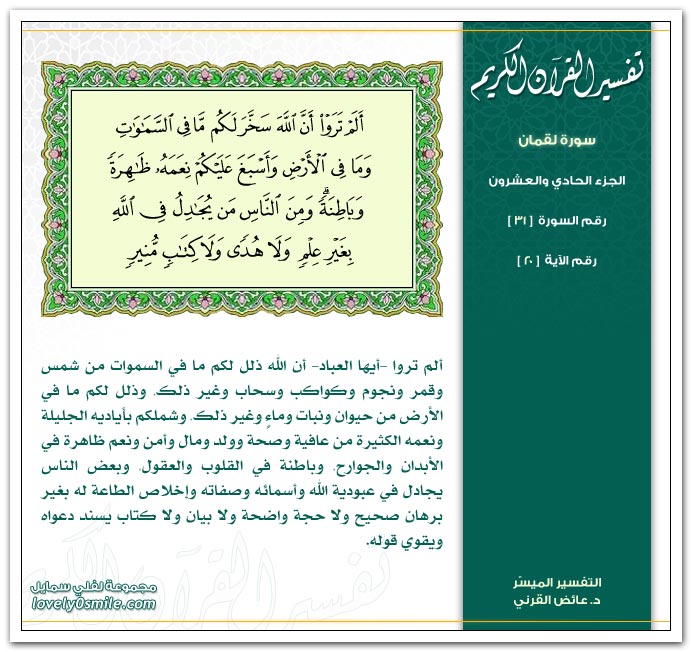 تفسير القرآن الكريم
سورة لقمان
الجزء الحادي والعشرون
رقم السورة [ ٣١ ]
رقم الآية [ ٢٠ ]
أَلَمْ تَرَوْا۟ أَنَّ ٱللَّهَ سَخَّرَ لَكُم مَّا فِى ٱلسَّمَـٰوَٰتِ
وَمَا فِى ٱلْأَرْضِ وَأَسْبَغَ عَلَيْكُمْ نِعَمَهُۥ ظَـٰهِرَةً
وَبَاطِنَةً ۗ وَمِنَ ٱلنَّاسِ مَن يُجَـٰدِلُ فِى ٱللَّهِ
بِغَيْرِ عِلْمٍ وَلَا هُدًى وَلَا كِتَـٰبٍ مُّنِيرٍ
ألم تروا -أيها العباد- أن الله ذلل لكم ما في السموات من شمس
وقمر ونجوم وكواكب وسحاب وغير ذلك، وذلل لكم ما في
الأرض من حيوان ونبات وماءٍ وغير ذلك، وشملكم بأياديه الجليلة
ونعمه الكثيرة من عافية وصحة وولد ومال وأمن ونعم ظاهرة في
الأبدان والجوارح، وباطنة في القلوب والعقول، وبعض الناس
يجادل في عبودية الله وأسمائه وصفاته وإخلاص الطاعة له بغير
برهان صحيح ولا حجة واضحة ولا بيان ولا كتاب يسند دعواه
ويقوي قوله.
التفسير الميسّر
د. عائض القرني
مجموعة لفلي سمايل
lovely0smile.com
تفسير القرآن الكريم